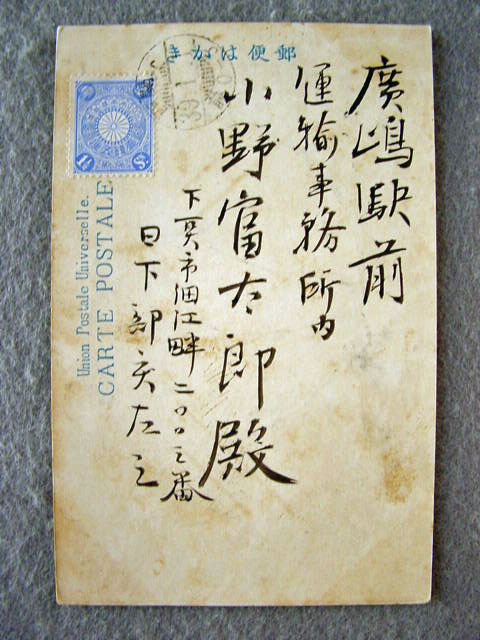 郵便はかき
廣嶋駅前
運輸事務所内
小野富太郎殿
下関市細江畔二〇〇三番
日下部
Union Postale Universelle.
CARTE POSTALE
1½ S
39